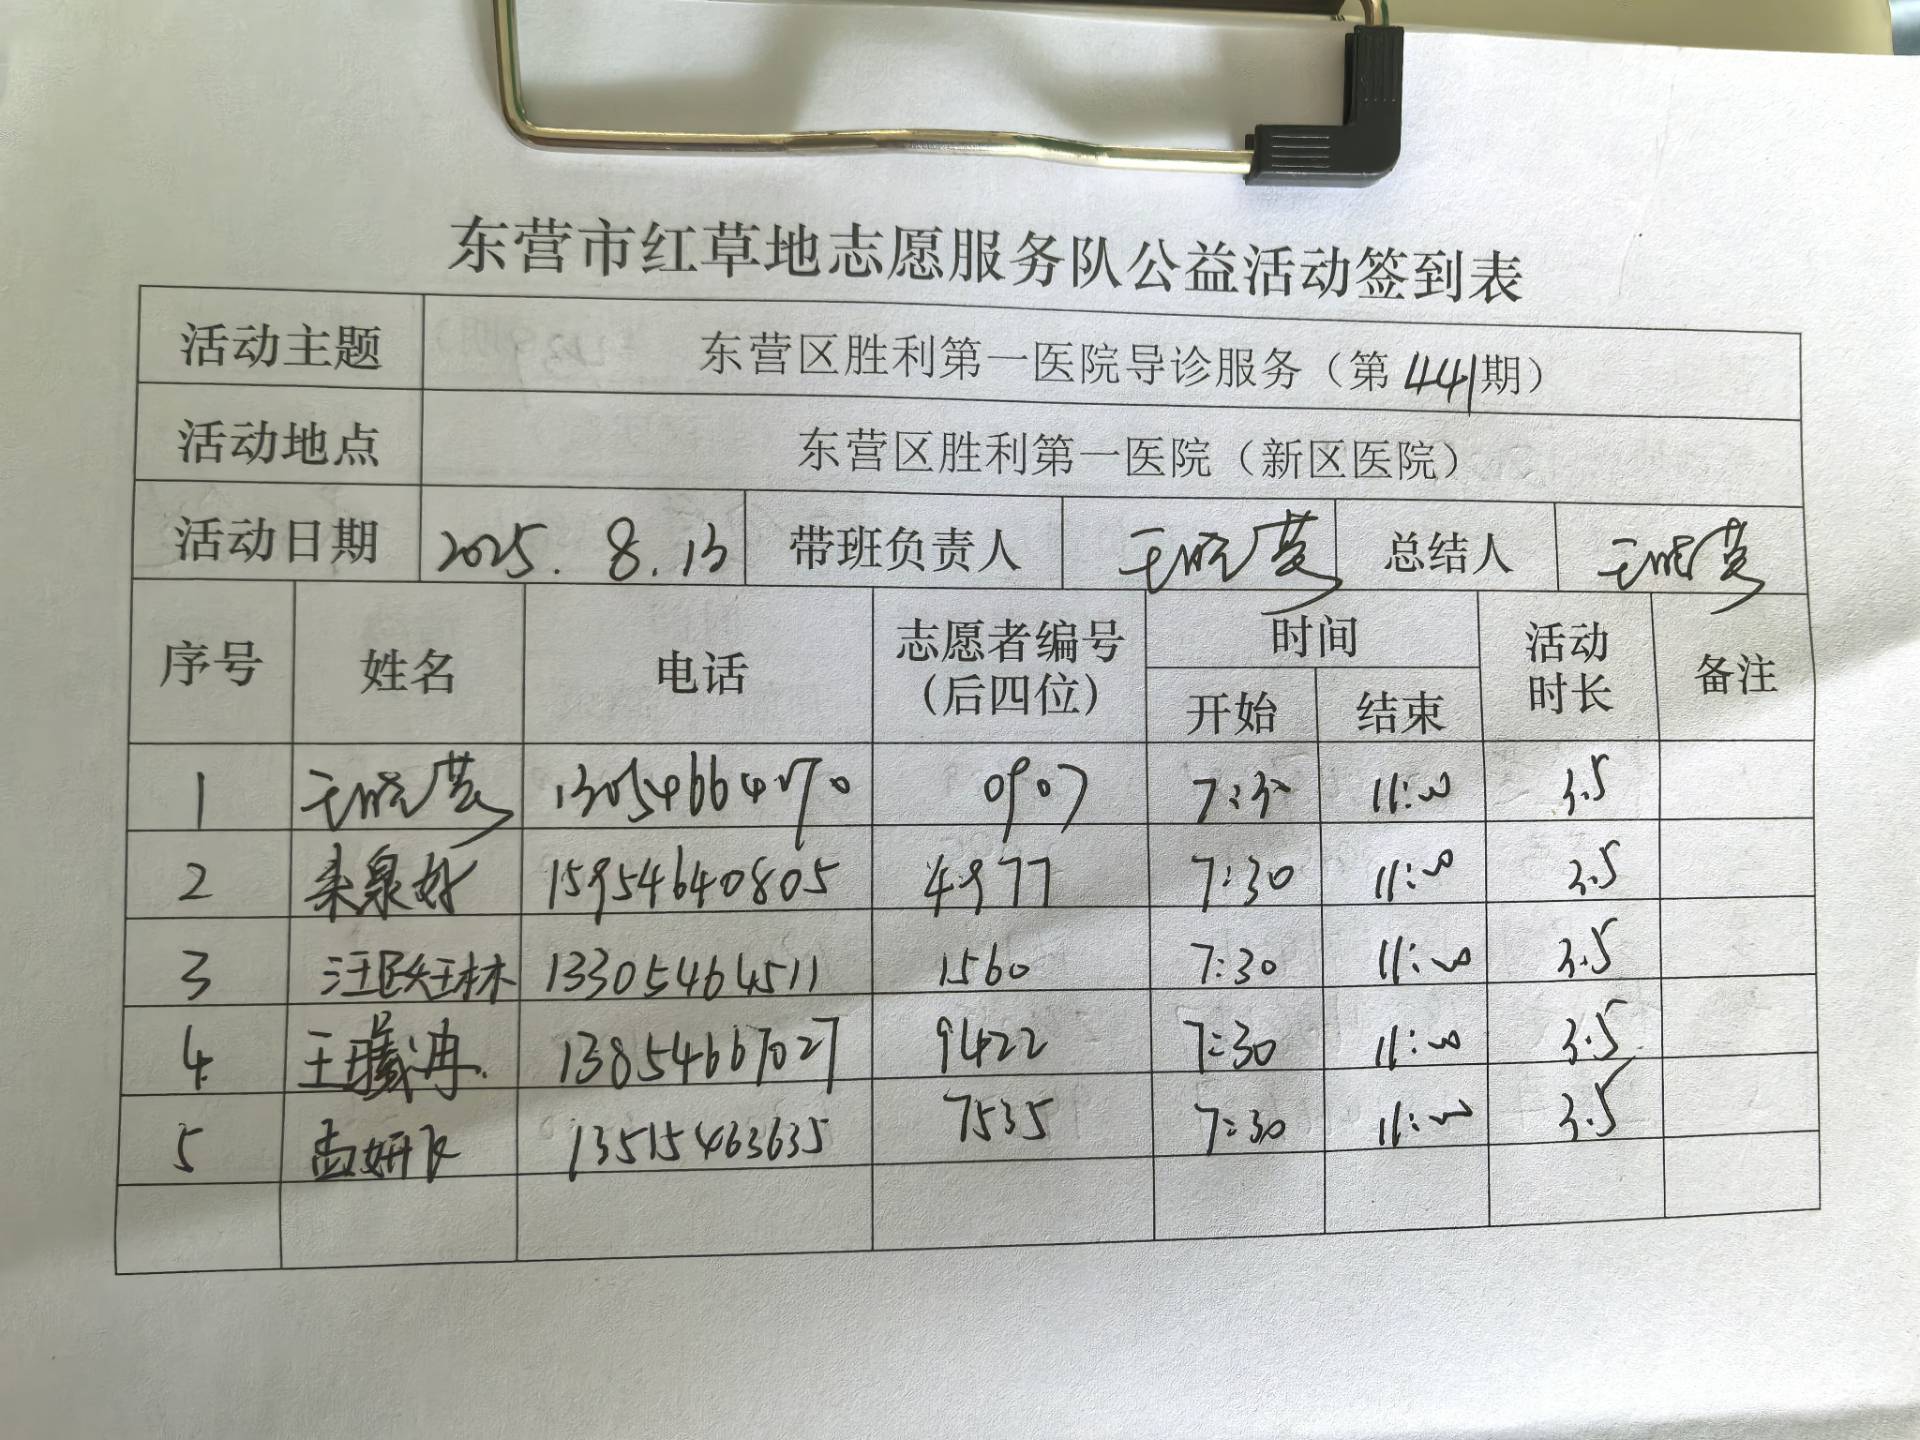 东营市红草地志愿服务队公益活动签到表
活动主题 东营区胜利第一医院导诊服务（第441期）
活动地点 东营区胜利第一医院（新区医院）
活动日期 2025.8.13 带班负责人 王晓营 总结人 王晓营
序号 姓名 电话 志愿者编号（后四位） 时间 开始 结束 活动时长 备注
1 王晓营 13054664070 0907 7:30 11:00 3.5
2 15954640805 4977 7:30 11:00 3.5
3 13305464511 1560 7:30 11:00 3.5
4 王 冉 13854667027 9422 7:30 11:00 3.5
5 孟妍 13515463635 7535 7:30 11:00 3.5